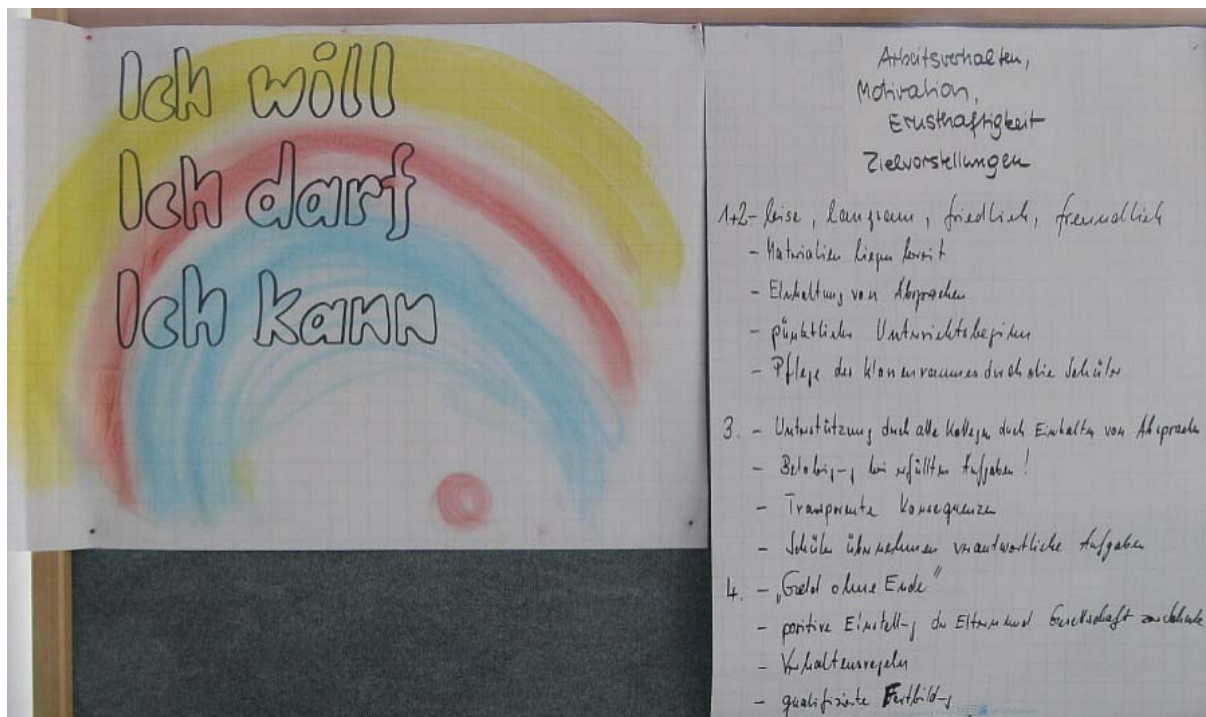 Ich will
Ich darf
Ich kann
Arbeitsverhalten,
Motivation,
Ernsthaftigkeit
Zielvorstellungen
1+2- leise, langsam, friedlich, freundlich
- Materialien liegen bereit
- Einhaltung von Absprachen
- pünktlicher Unterrichtsbeginn
- Pflege des Klassenraumes durch die Schüler
3. - Unterstützung durch alle Kollegen durch Einhalten von Absprachen
- Belobig-g bei erfüllten Aufgaben!
- Transparente Konsequenzen
- Schüler übernehmen verantwortliche Aufgaben
4. - „Geld ohne Ende"
- positive Einstell-g der Eltern und Gesellschaft zur Schule
- Verhaltensregeln
- qualifizierte Fortbild-g